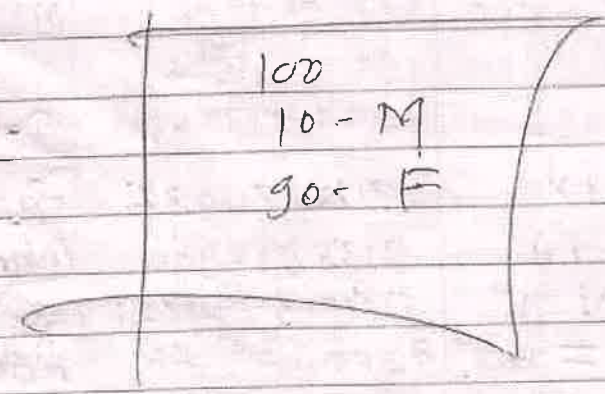 100
10 - M
90 - F